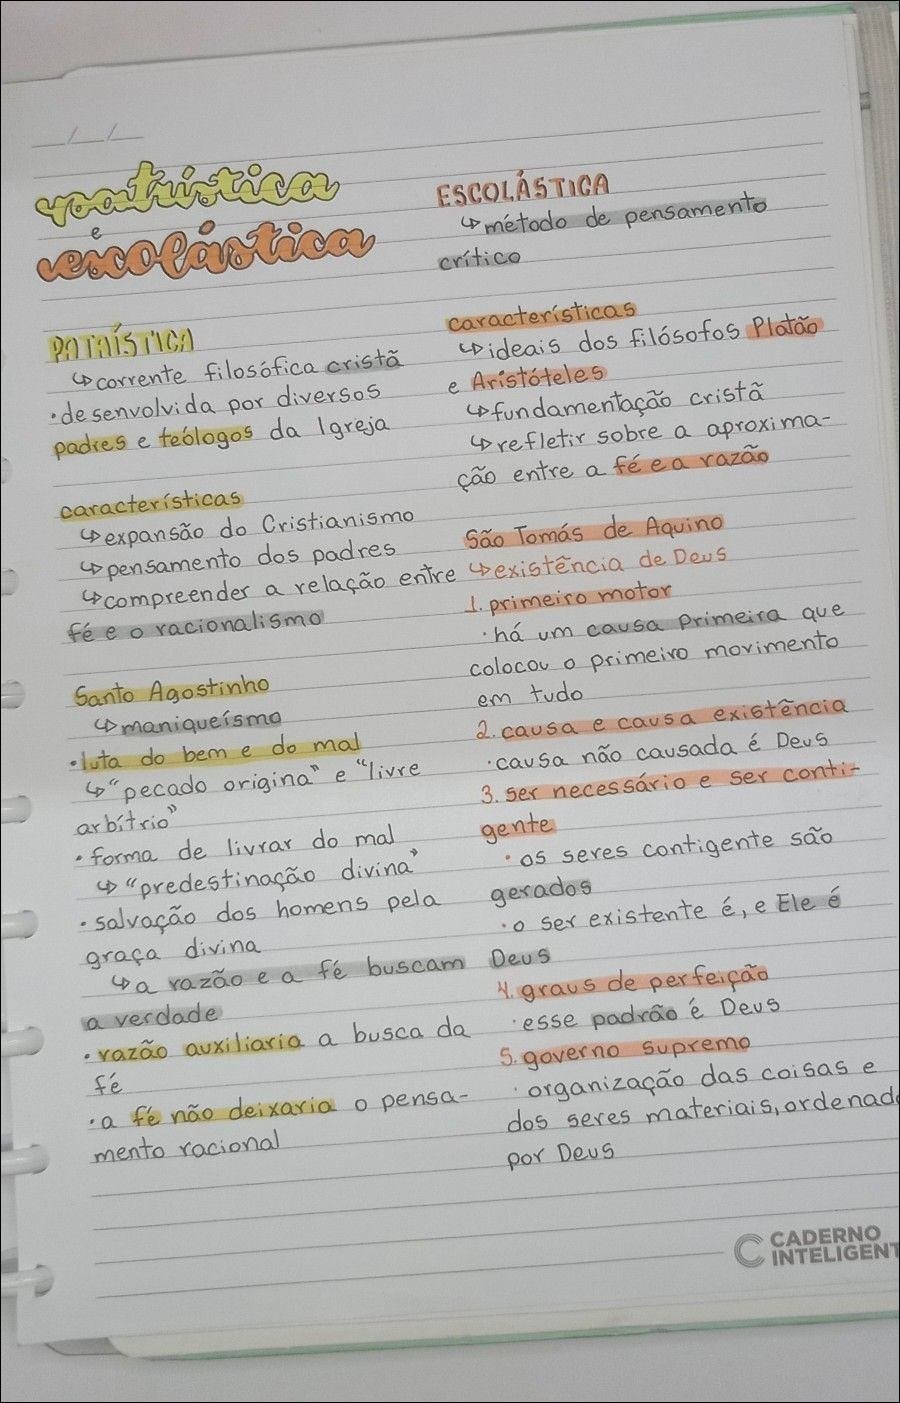 patrística
e
escolástica
PATRÍSTICA
↳ corrente filosófica cristã
• desenvolvida por diversos
padres e teólogos da Igreja
características
↳ expansão do Cristianismo
↳ pensamento dos padres
↳ compreender a relação entre
fé e o racionalismo
Santo Agostinho
↳ maniqueísmo
• luta do bem e do mal
↳ "pecado origina" e "livre
arbítrio"
• forma de livrar do mal
↳ "predestinação divina"
• salvação dos homens pela
graça divina
↳ a razão e a fé buscam
a verdade
• razão auxiliaria a busca da
fé
• a fé não deixaria o pensa-
mento racional
ESCOLÁSTICA
↳ método de pensamento
crítico
características
↳ ideais dos filósofos Platão
e Aristóteles
↳ fundamentação cristã
↳ refletir sobre a aproxima-
ção entre a fé e a razão
São Tomás de Aquino
↳ existência de Deus
1. primeiro motor
• há um causa primeira que
colocou o primeiro movimento
em tudo
2. causa e causa existência
• causa não causada é Deus
3. ser necessário e ser conti-
gente
• os seres contigente são
gerados
• o ser existente é, e Ele é
Deus
4. graus de perfeição
• esse padrão é Deus
5. governo supremo
• organização das coisas e
dos seres materiais, ordenad
por Deus
CADERNO
INTELIGENT